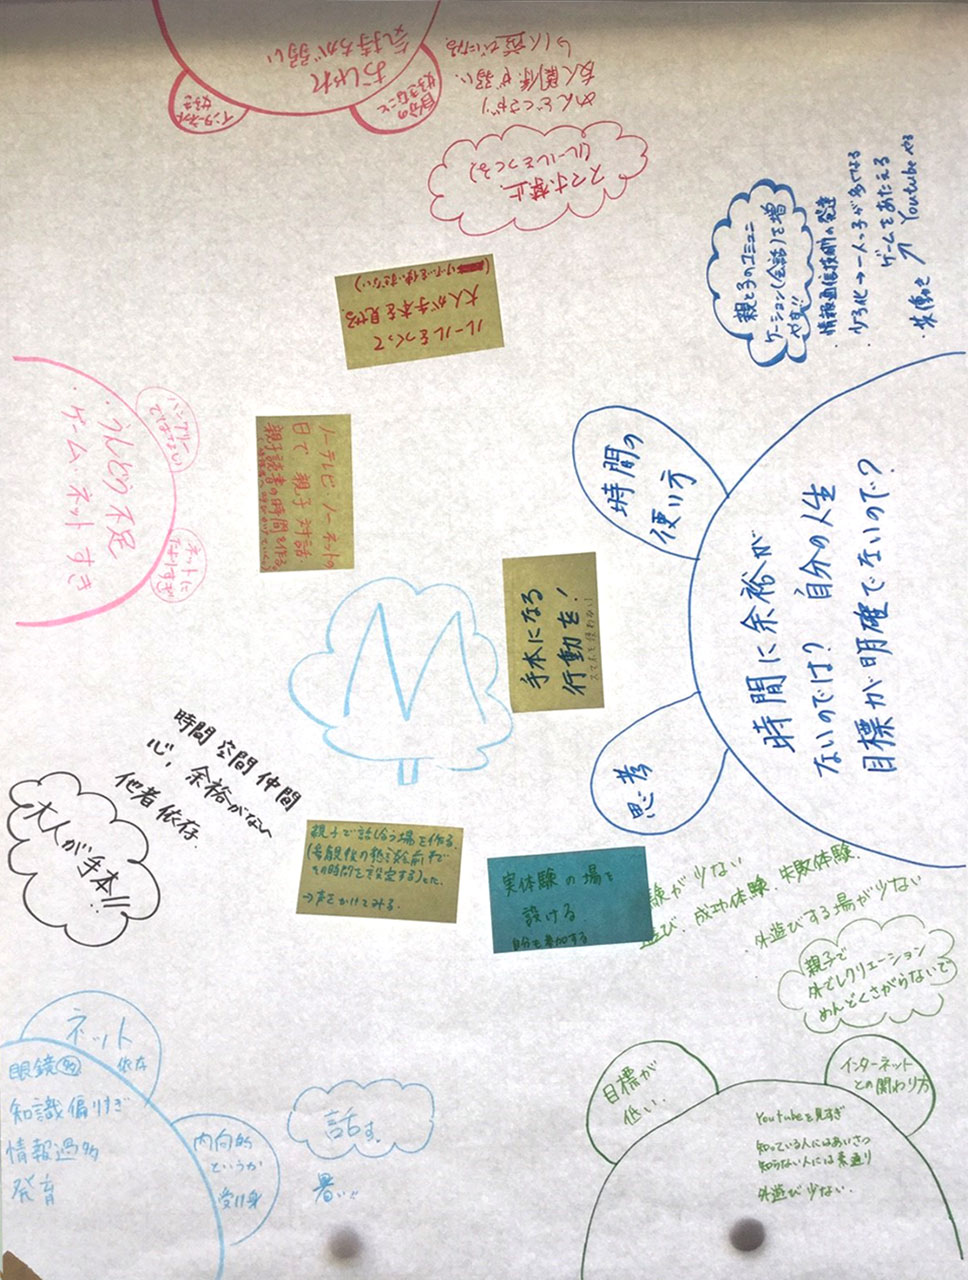 おしゃれ
気持ちが弱い
インターネット
好き
自分の
好きなこと
めんどくさがり
友人関係が弱い
スマホ禁止
(ルールをつくる)
ルールをつくって
大人が手本を見せる
親と子のコミュニ
ケーション(会話)を増
やす!!
・情報通信技術の発達
・少子化→一人っ子が多くなる
ゲームをあたえる
・共働き ↗ Youtubeやる
・うんどう不足
ゲーム・ネットすき
ハングリー
ネットに
ノーテレビ・ノーネットの
日で 親子対話
親子読書の時間を作る
時間の
使い方
思考
時間に余裕が
ないのでは? 自分の人生
目標が明確でないので?
手本になる
行動を!
スマホを使わない
M
時間 空間 仲間
心, 余裕がない
他者依存
大人が手本!!
親子で話し合う場を作る
→声をかけてみる。
実体験の場を
設ける
自分も参加する
験が少ない
遊び、成功体験、失敗体験、
・外遊びする場が少ない
親子で
外でレクリエーション
めんどくさがらないで
ネット
依存
眼鏡多
知識偏りすぎ
情報過多
発育
内向的
というか
受け身
話す
暑い
目標が
低い.
インターネット
との関わり方
Youtubeを見すぎ
知っている人にはあいさつ
知らない人には素通り
外遊び少ない.